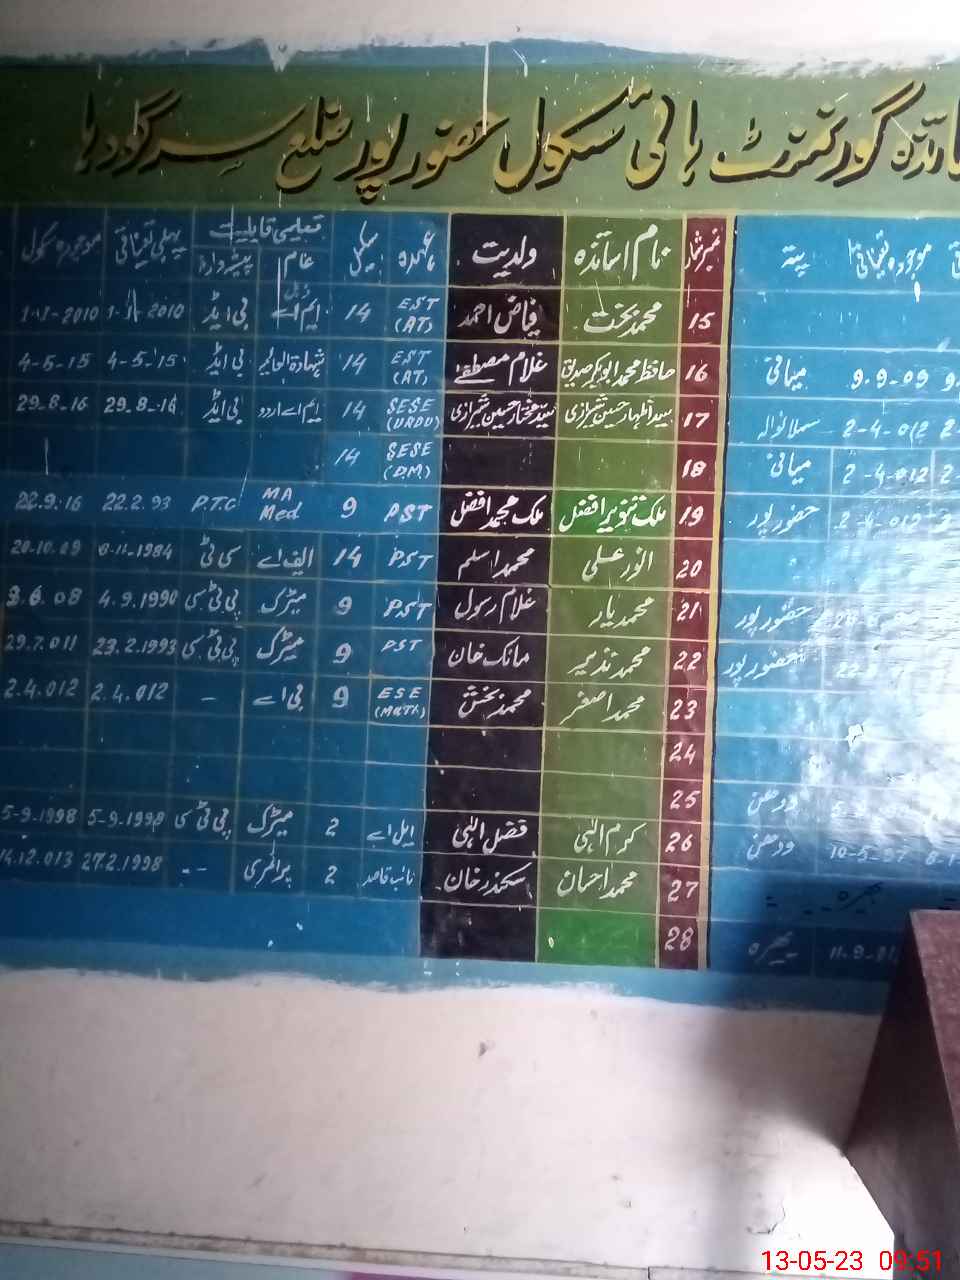 گورنمنٹ ہائی سکول حضور پور ضلع سرگودہا
پتہ موجودہ تعیناتی
نمبر شمار نام اساتذہ ولدیت عہدہ سکیل تعلیمی قابلیت پہلی تعیناتی موجودہ سکول
عام پیشہ ورانہ
15 محمد بخت فیاض احمد EST (AT) 14 ڈبل ایم اے بی ایڈ 1-11-2010
16 حافظ محمد ابوبکر صدیق غلام مصطفےٰ EST (AT) 14 شہادۃ العالمیہ بی ایڈ 4-5-15 4-5-15
17 سید اظہار حسین شیرازی سید مختار حسین شیرازی SESE (URDU) 14 ایم اے اردو بی ایڈ 29.8.16 29-8-16
18 SESE (DM) 14
19 ملک تنویر افضل ملک محمد افضل PST 9 MA Med P.T.C 22.2.93 22.9.16
20 انور علی محمد اسلم PST 14 ایف اے سی ٹی 20.10.09
21 محمد یار غلام رسول PST 9 میٹرک پی ٹی سی 4.9.1990
22 محمد نذیر مانک خان PST 9 میٹرک پی ٹی سی 23.2.1993 29.7.011
23 محمد اصغر محمد بخش ESE (MATH) 9 بی اے - 2.4.012 2.4.012
24
25
26 کرم الٰہی فضل الٰہی ایل اے 2 میٹرک پی ٹی سی 5-9-1998 5-9-1998
27 محمد احسان سکندر خان نائب قاصد 2 پرائمری -- 27.2.1998 14.12.013
28
میانی 9-9-09
سلانوالہ 2-4-012
میانی 2-4-012
حضور پور 2-4-012
حضور پور
حضور پور
ودھن
ودھن
بھیرہ
بھیرہ
13-05-23 09:51